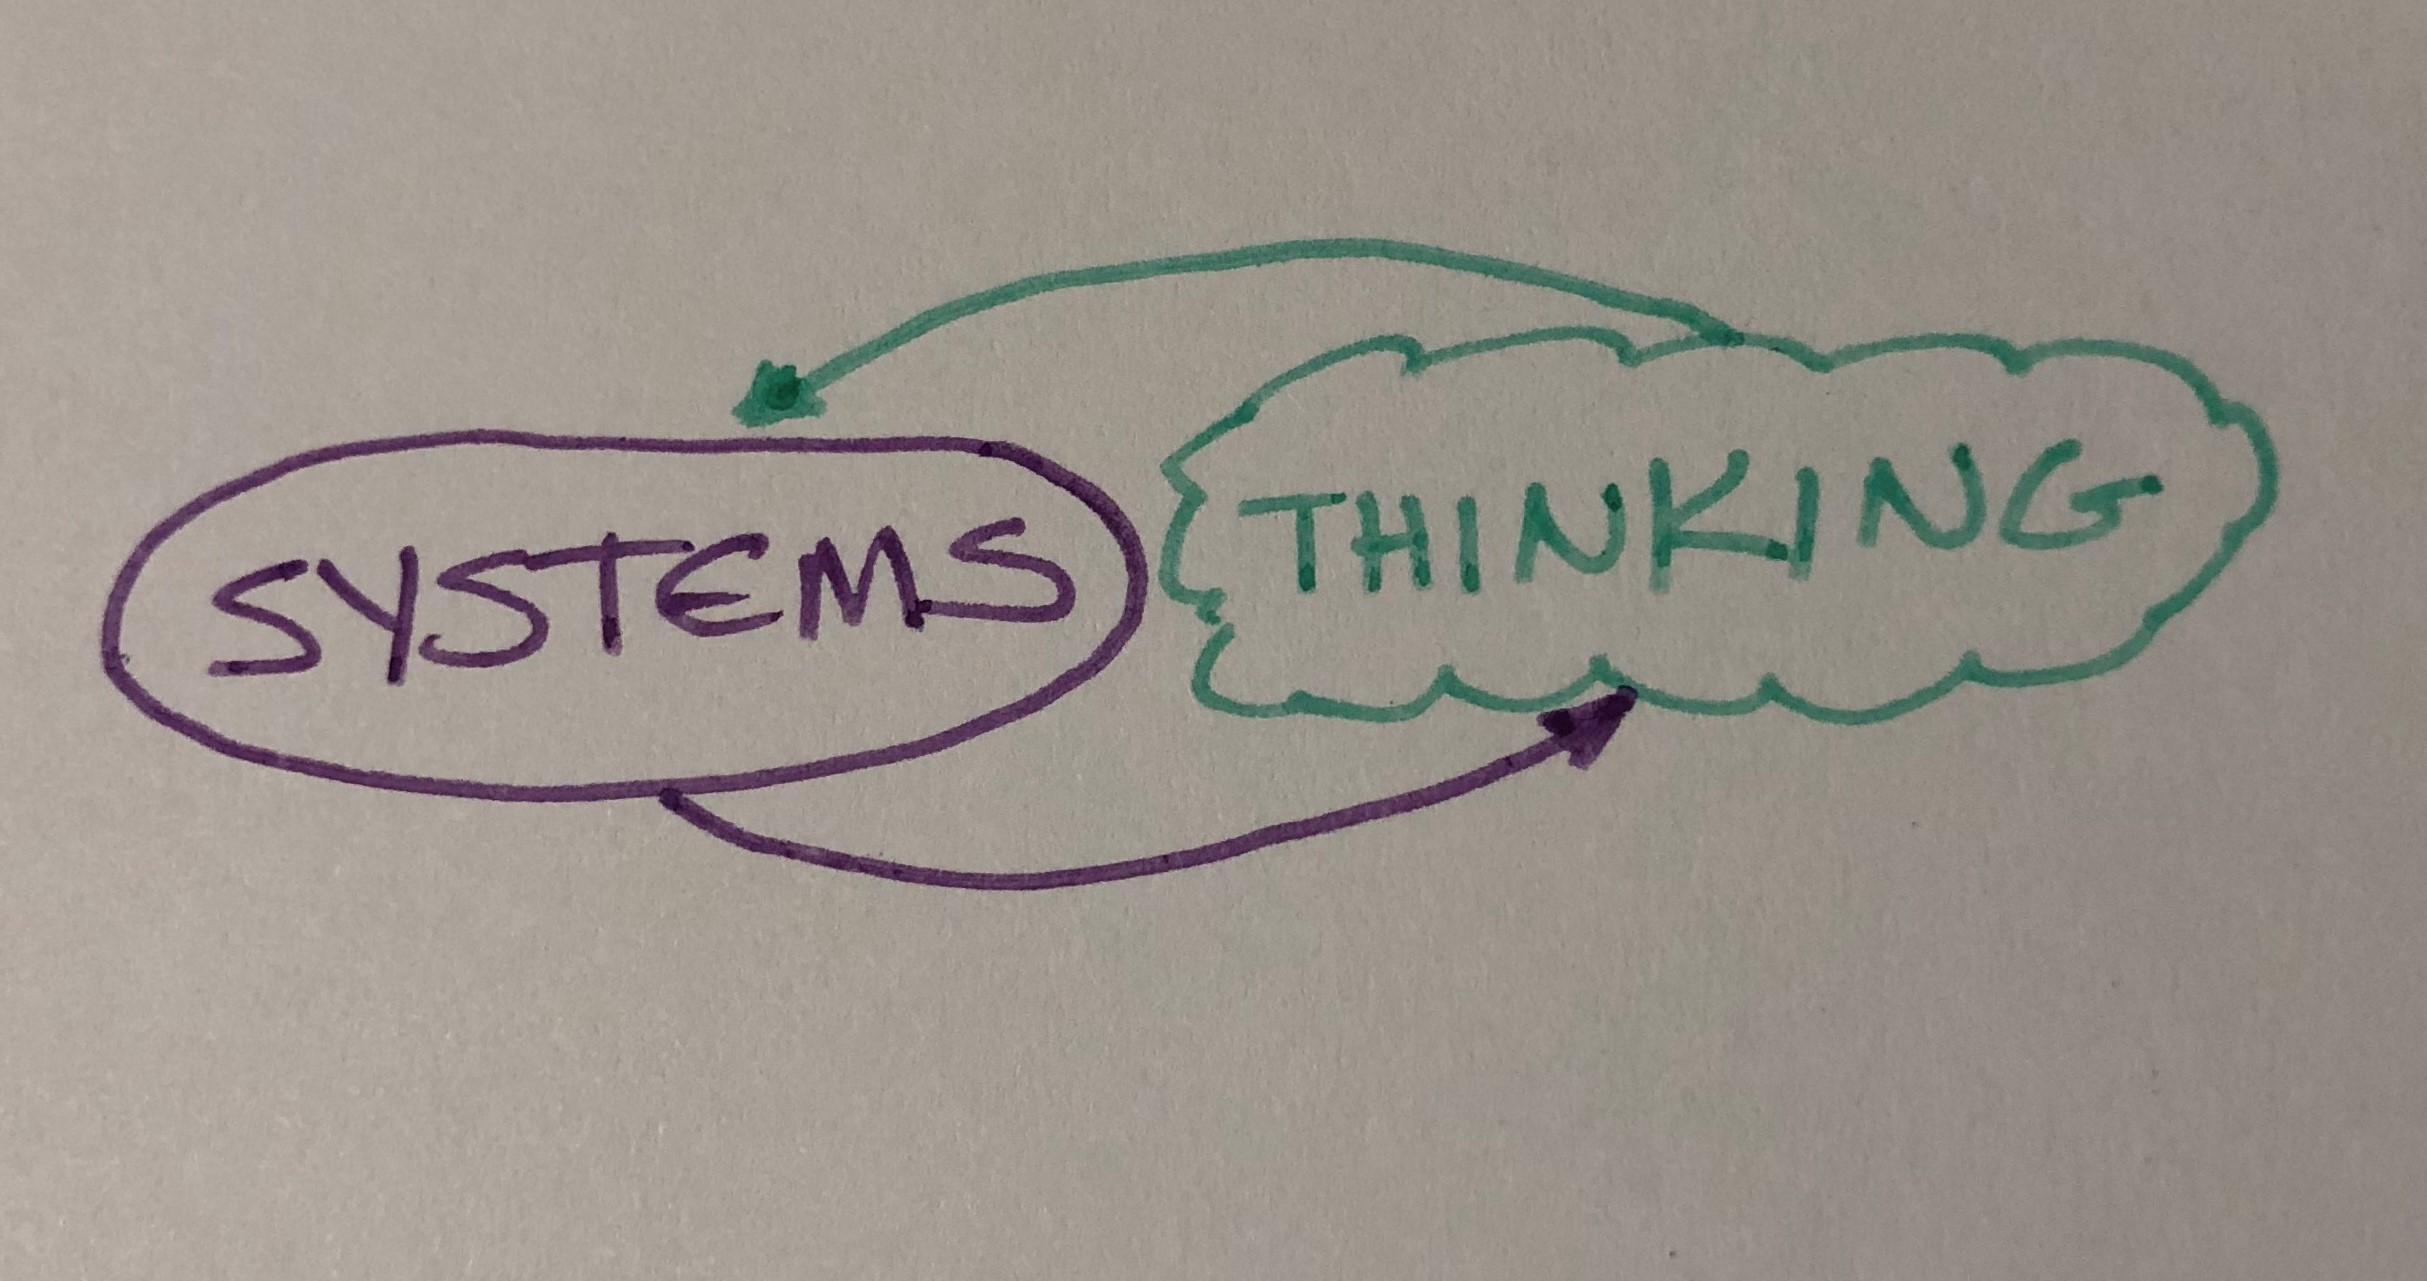 SYSTEMS THINKING